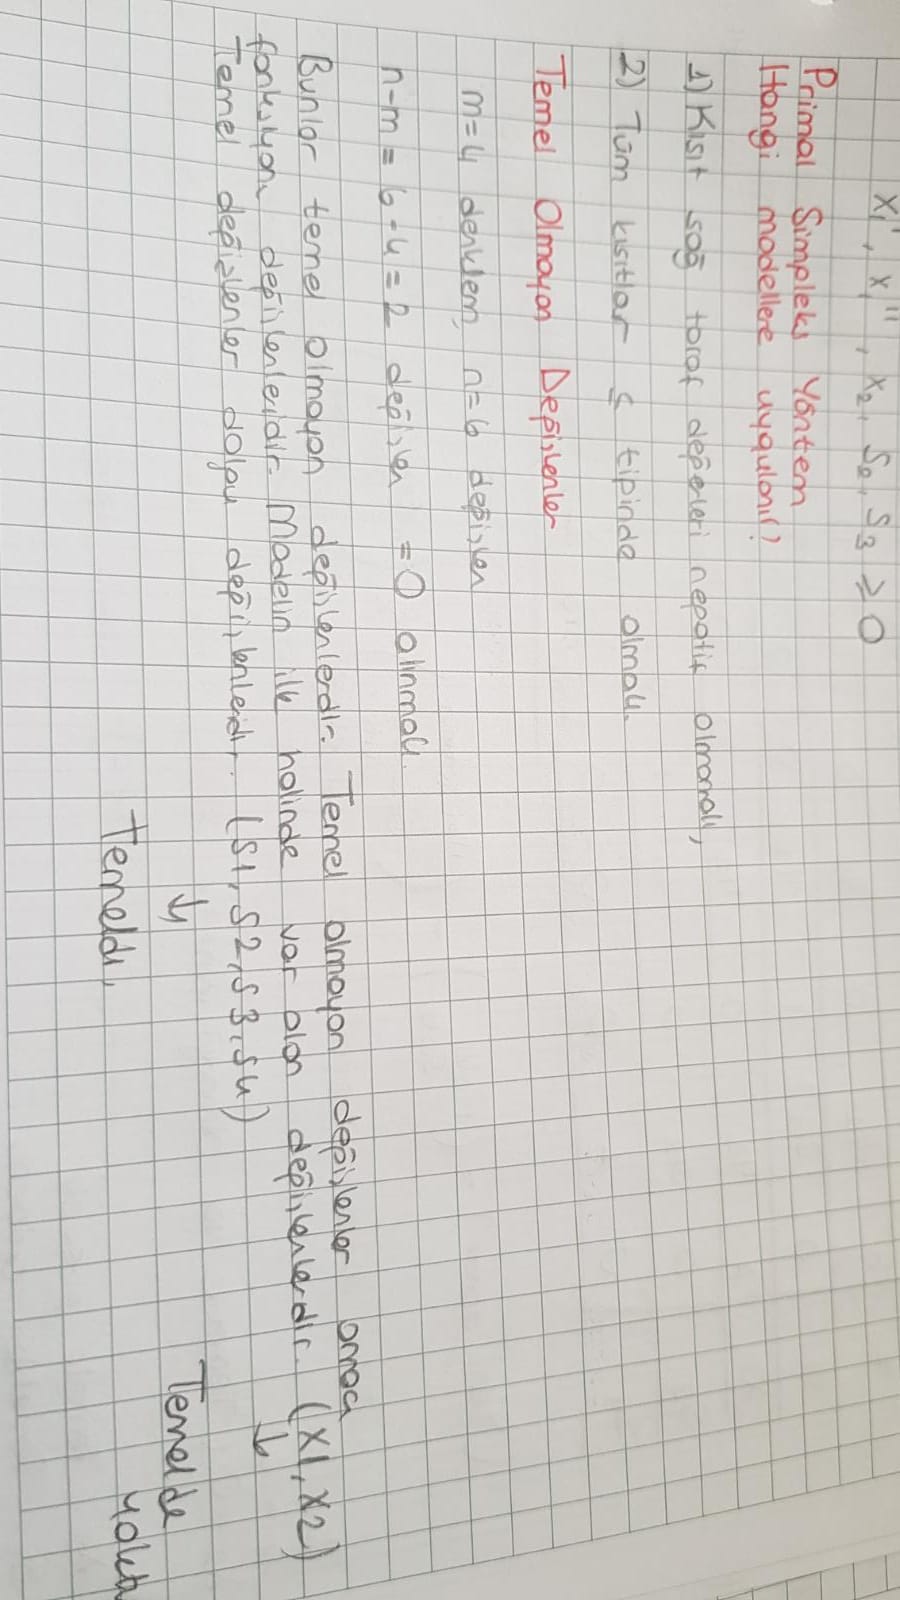 x₁', x₁'', x₂, S₂, S₃ ≥ 0
Primal Simpleks Yöntem
Hangi modellere uygulanır?
1) Kısıt sağ taraf değerleri negatif olmamalı,
2) Tüm kısıtlar ≤ tipinde olmalı.
Temel Olmayan Değişkenler
m=4 denklem, n=6 değişken
n-m = 6-4 = 2 değişken = 0 alınmalı.
Bunlar temel olmayan değişkenlerdir. Temel olmayan değişkenler amaç
fonksiyonu değişkenleridir. Modelin ilk halinde var olan değişkenlerdir. (X1, X2)
Temel değişkenler dolgu değişkenleridir. (S1, S2, S3, S4) ↓
↓ Temelde
Temeldı, yoktu